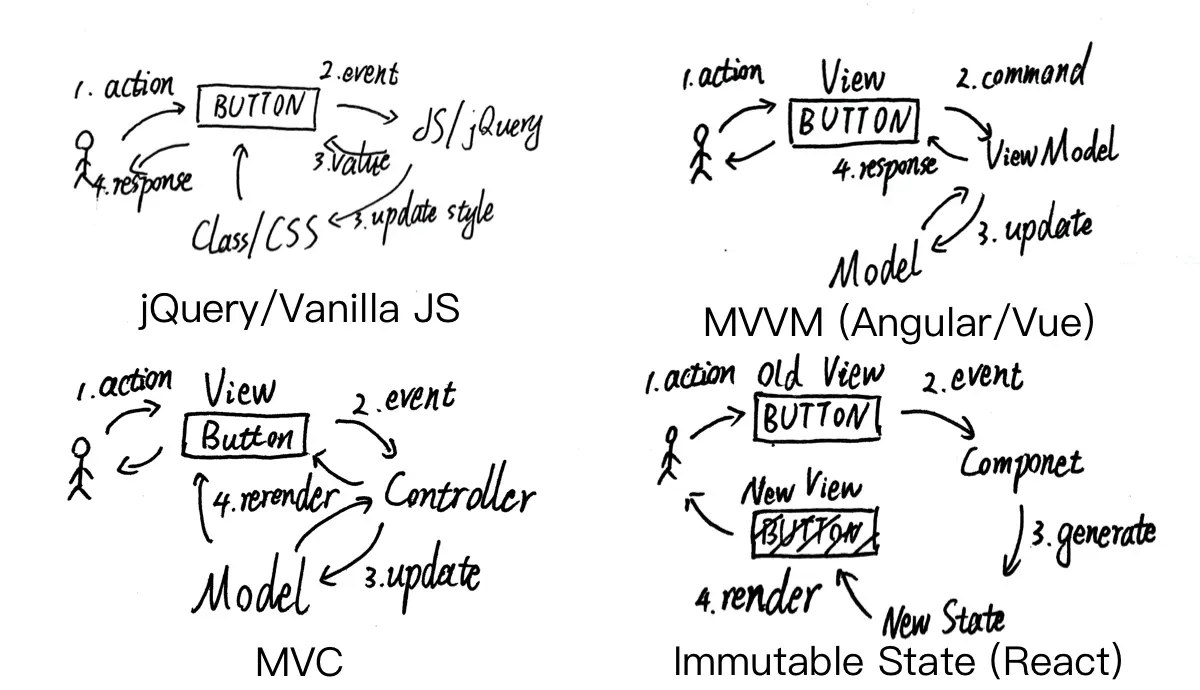 1. action
2. event
BUTTON
JS/jQuery
3. value
4. response
3. update style
Class/CSS
jQuery/Vanilla JS
1. action
View
2. command
BUTTON
4. response
ViewModel
3. update
Model
MVVM (Angular/Vue)
1. action
View
2. event
Button
4. rerender
Controller
3. update
Model
MVC
1. action
Old View
2. event
BUTTON
Componet
New View
BUTTON
3. generate
4. render
New State
Immutable State (React)